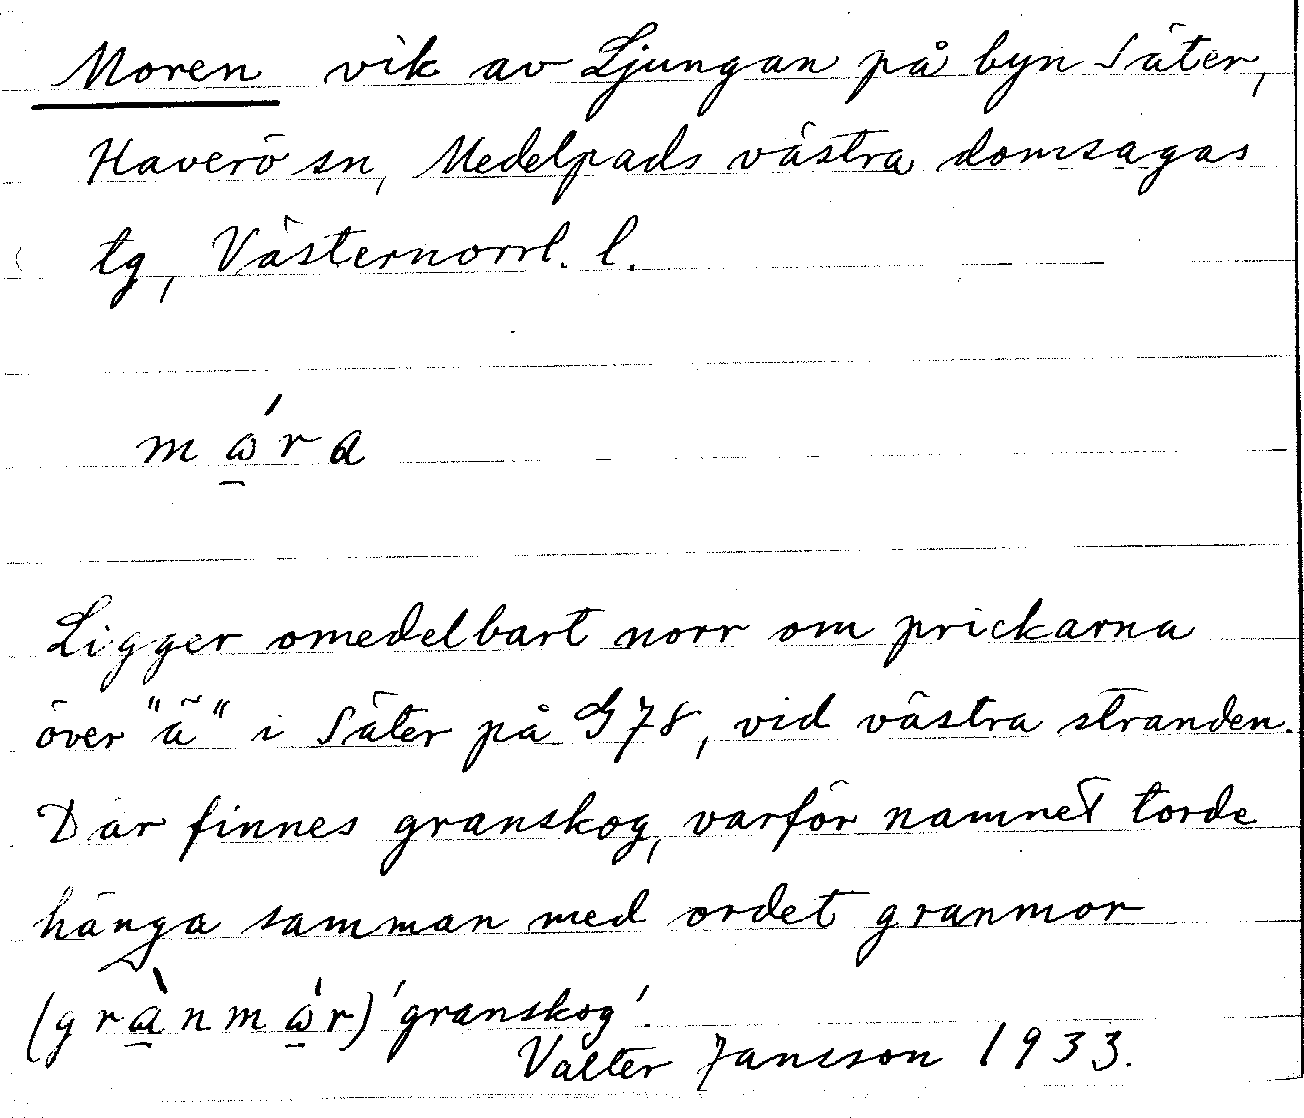 Moren vik av Ljungan på byn Säter,
Haverö sn, Medelpads västra domsagas
tg, Västernorrl. l.
mώ̱ra
Ligger omedelbart norr om prickarna
över "ä" i Säter på G78, vid västra stranden.
Där finnes granskog, varför namnet torde
hänga samman med ordet granmor
(grà̱nmὼ̱r) 'granskog'.
Valter Jansson 1933.